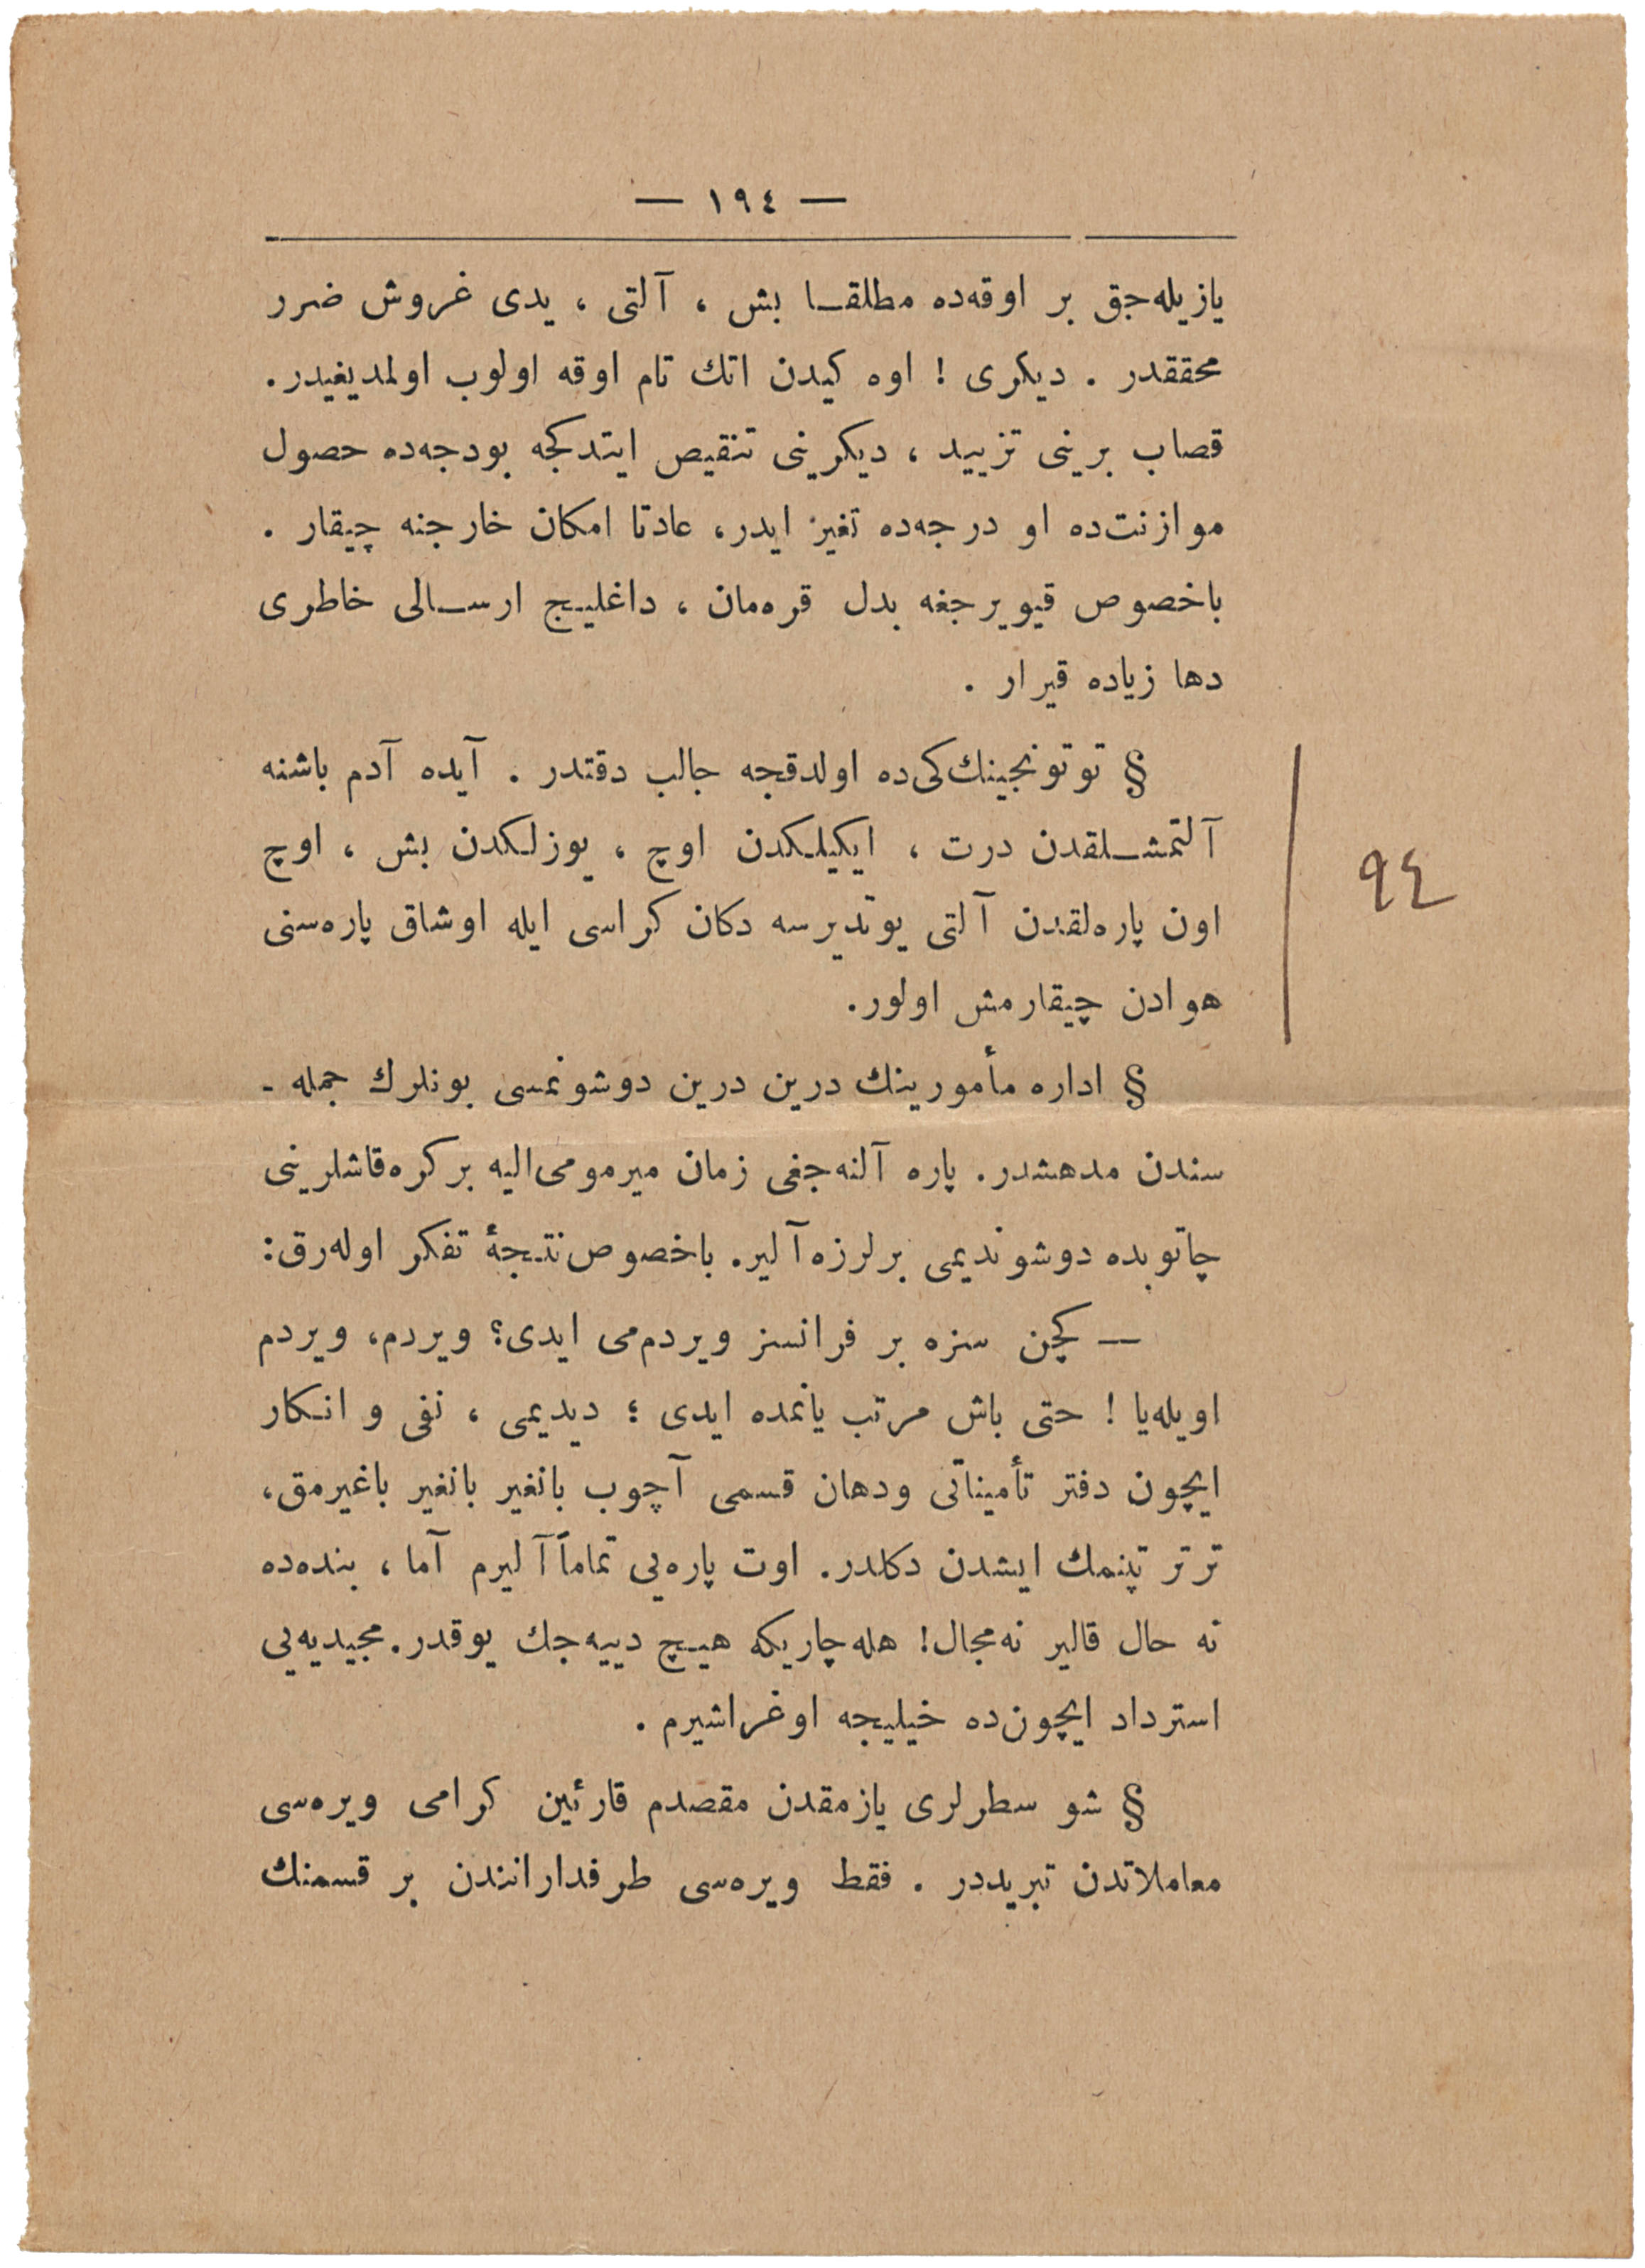 — ١٩٤ —
يازيله‌جق بر اوقه‌ده مطلقا بش ، آلتى ، يدى غروش ضرر
محققدر . ديكرى ! اوه كيدن اتك تام اوقه اولوب اولمديغيدر.
قصاب برينى تزييد ، ديكرينى تنقيص ايتدكجه بودجه‌ده حصول
موازنت‌ده او درجه‌ده تغير ايدر، عادتا امكان خارجنه چيقار .
باخصوص قيويرجغه بدل قره‌مان ، داغليج ارسالى خاطرى
دها زياده قيرار .
§ توتونجينك‌كى‌ده اولدقجه جالب دقتدر . آيده آدم باشنه
آلتمشلقدن درت ، ايكيلكدن اوچ ، يوزلكدن بش ، اوچ
اون پاره‌لقدن آلتى يوتديرسه دكان كراسى ايله اوشاق پاره‌سنى
هوادن چيقارمش اولور.
§ اداره مأمورينك درين درين دوشونمسى بونلرك جمله -
سندن مدهشدر. پاره آلنه‌جغى زمان ميرمومى‌اليه بركره‌قاشلرينى
چاتوبده دوشونديمى برلرزه‌آلير. باخصوص نتيجۀ تفكر اوله‌رق:
— كچن سزه بر فرانسز ويردم‌مى ايدى؟ ويردم، ويردم
اويله‌يا ! حتى باش مرتب يانمده ايدى ؛ ديديمى ، نفى و انكار
ايچون دفتر تأميناتى ودهان قسمى آچوب بانغير بانغير باغيرمق،
ترتر تپنمك ايشدن دكلدر. اوت پاره‌يى تماماً آليرم آما ، بنده‌ده
نه حال قالير نه‌مجال! هله‌چاريكه هيچ دييه‌جك يوقدر. مجيديه‌يى
استرداد ايچون‌ده خيليجه اوغراشيرم .
§ شو سطرلرى يازمقدن مقصدم قارئين كرامى ويره‌سى
معاملاتدن تبريددر . فقط ويره‌سى طرفدارانندن بر قسمنك
٩٤